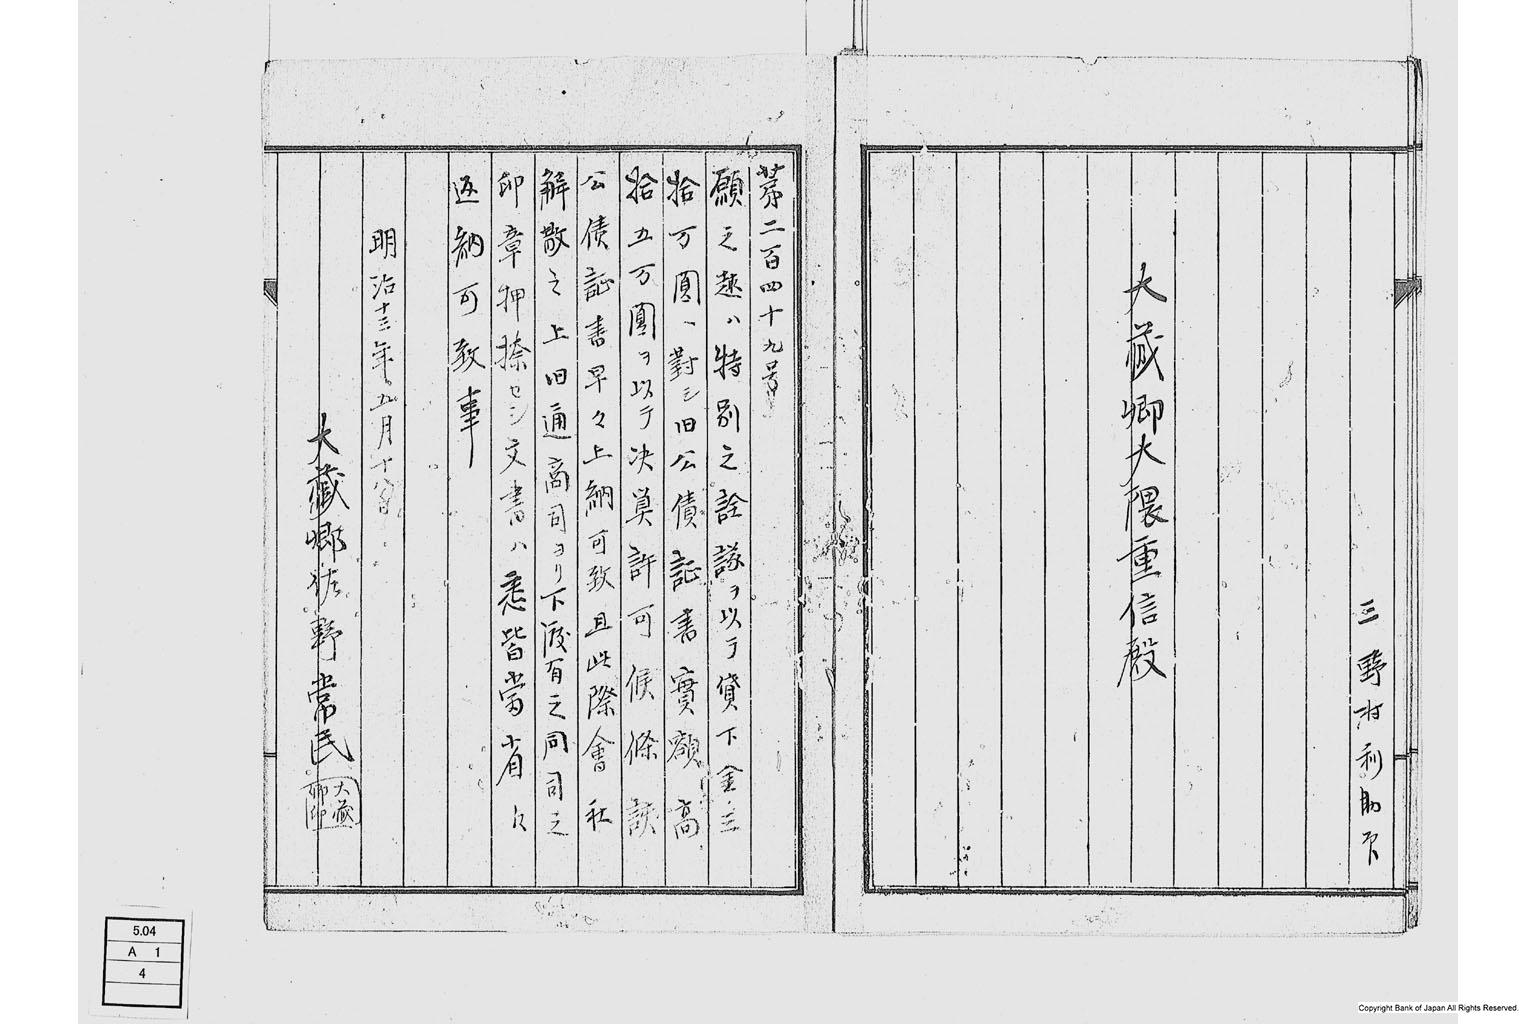 三野村利助印
大蔵卿大隈重信殿
第二百四十九号
願之趣ハ特別之詮議ヲ以テ貸下金三
拾万圓ヘ對シ旧公債証書實額高
拾五万圓ヲ以テ决算許可候條該
公債証書早々上納可致且此際會社
解散之上旧通商司ヨリ下渡有之同司之
印章押捺セシ文書ハ悉皆當省ヘ
返納可致事
明治十三年五月十八日
大藏卿佐野常民
大藏卿印
5.04
A 1
4
Copyright Bank of Japan All Rights Reserved.